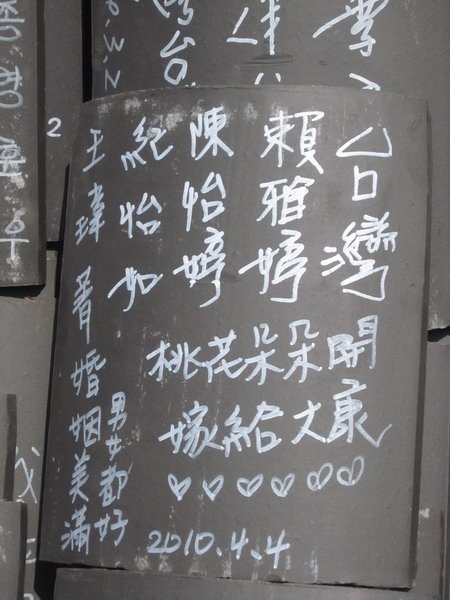 台灣
賴雅婷
陳怡婷
紀怡如
王瑋菁婚姻美滿
男女都好
桃花朵朵開
嫁給大康
2010.4.4
2